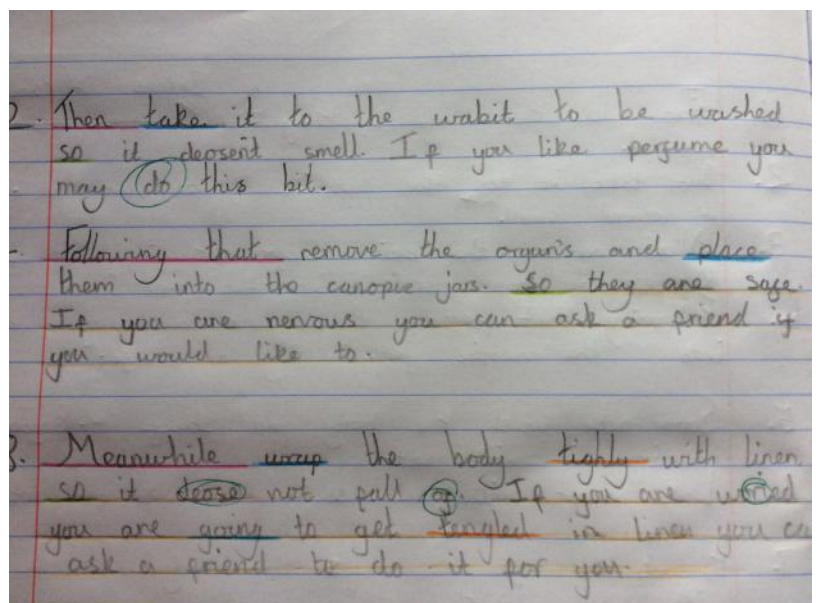 2. Then take it to the wabit to be washed
so it deosent smell. If you like perfume you
may do this bit.
Following that remove the organ's and place
them into the canopic jars. So they are safe.
If you are nervous you can ask a friend if
you would like to.
3. Meanwhile wrap the body tighly with linen
so it deose not fall of. If you are worried
you are going to get tangled in linen you can
ask a friend to do it for you.